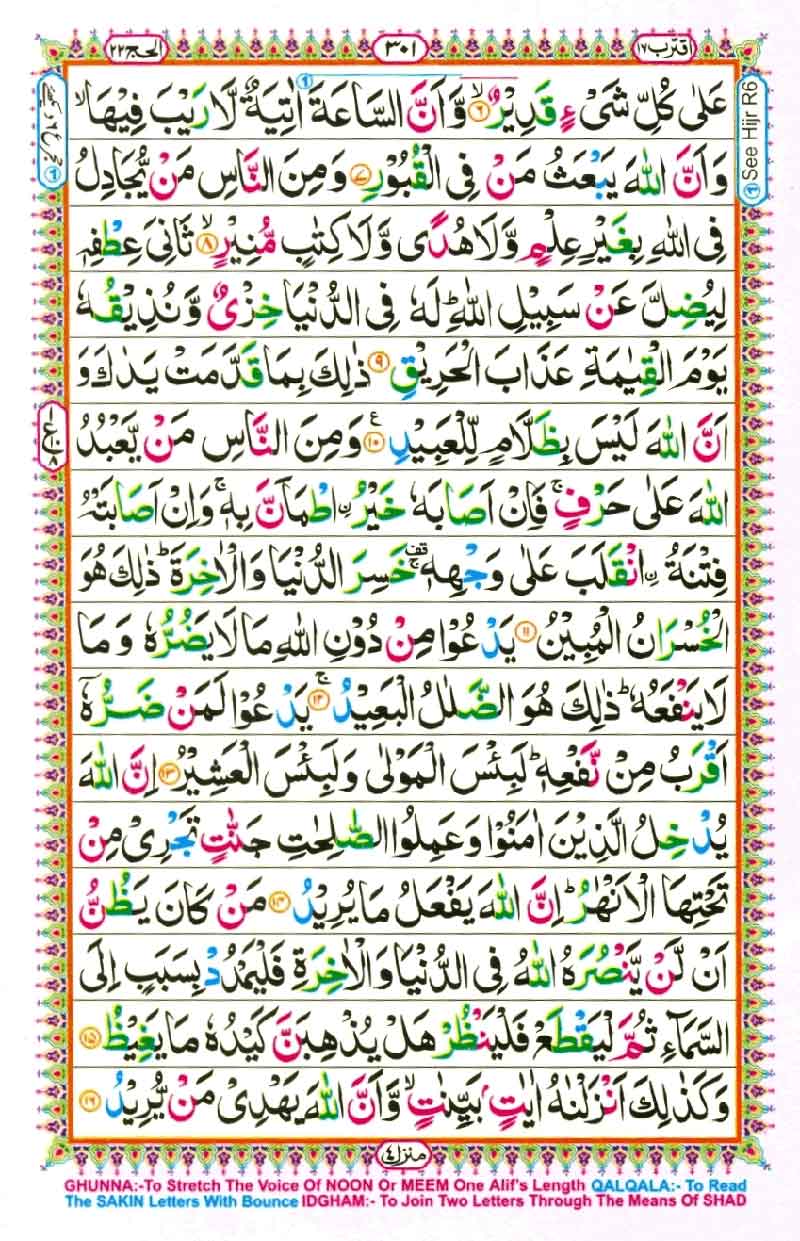 اقترب ١٧
٣٠١
الحج ٢٢
عَلٰى كُلِّ شَىْءٍ قَدِيْرٌ ۙ﴿۶﴾ وَّاَنَّ السَّاعَةَ اٰتِيَةٌ لَّا رَيْبَ فِيْهَا ۙ
وَاَنَّ اللّٰهَ يَبْعَثُ مَنْ فِى الْقُبُوْرِ ﴿۷﴾ وَمِنَ النَّاسِ مَنْ يُّجَادِلُ
فِى اللّٰهِ بِغَيْرِ عِلْمٍ وَّلَا هُدًى وَّلَا كِتٰبٍ مُّنِيْرٍ ۙ﴿۸﴾ ثَانِىَ عِطْفِهٖ
لِيُضِلَّ عَنْ سَبِيْلِ اللّٰهِ ؕ لَهٗ فِى الدُّنْيَا خِزْىٌ وَّنُذِيْقُهٗ
يَوْمَ الْقِيٰمَةِ عَذَابَ الْحَرِيْقِ ﴿۹﴾ ذٰلِكَ بِمَا قَدَّمَتْ يَدٰكَ وَ
اَنَّ اللّٰهَ لَيْسَ بِظَلَّامٍ لِّلْعَبِيْدِ ﴿۱۰﴾ وَمِنَ النَّاسِ مَنْ يَّعْبُدُ
اللّٰهَ عَلٰى حَرْفٍ ۚ فَاِنْ اَصَابَهٗ خَيْرُ ۨ اطْمَاَنَّ بِهٖ ۚ وَاِنْ اَصَابَتْهُ
فِتْنَةُ ۨ انْقَلَبَ عَلٰى وَجْهِهٖ ۚ خَسِرَ الدُّنْيَا وَالْاٰخِرَةَ ؕ ذٰلِكَ هُوَ
الْخُسْرَانُ الْمُبِيْنُ ﴿۱۱﴾ يَدْعُوْا مِنْ دُوْنِ اللّٰهِ مَا لَا يَضُرُّهٗ وَمَا
لَا يَنْفَعُهٗ ؕ ذٰلِكَ هُوَ الضَّلٰلُ الْبَعِيْدُ ۚ﴿۱۲﴾ يَدْعُوْا لَمَنْ ضَرُّهٗۤ
اَقْرَبُ مِنْ نَّفْعِهٖ ؕ لَبِئْسَ الْمَوْلٰى وَلَبِئْسَ الْعَشِيْرُ ﴿۱۳﴾ اِنَّ اللّٰهَ
يُدْخِلُ الَّذِيْنَ اٰمَنُوْا وَعَمِلُوا الصّٰلِحٰتِ جَنّٰتٍ تَجْرِىْ مِنْ
تَحْتِهَا الْاَنْهٰرُ ؕ اِنَّ اللّٰهَ يَفْعَلُ مَا يُرِيْدُ ﴿۱۴﴾ مَنْ كَانَ يَظُنُّ
اَنْ لَّنْ يَّنْصُرَهُ اللّٰهُ فِى الدُّنْيَا وَالْاٰخِرَةِ فَلْيَمْدُدْ بِسَبَبٍ اِلَى
السَّمَآءِ ثُمَّ لْيَقْطَعْ فَلْيَنْظُرْ هَلْ يُذْهِبَنَّ كَيْدُهٗ مَا يَغِيْظُ ﴿۱۵﴾
وَكَذٰلِكَ اَنْزَلْنٰهُ اٰيٰتٍۭ بَيِّنٰتٍ ۙ وَّاَنَّ اللّٰهَ يَهْدِىْ مَنْ يُّرِيْدُ ﴿۱۶﴾
See Hijr R6
منزل ٤
GHUNNA:-To Stretch The Voice Of NOON Or MEEM One Alif's Length QALQALA:- To Read
The SAKIN Letters With Bounce IDGHAM:- To Join Two Letters Through The Means Of SHAD